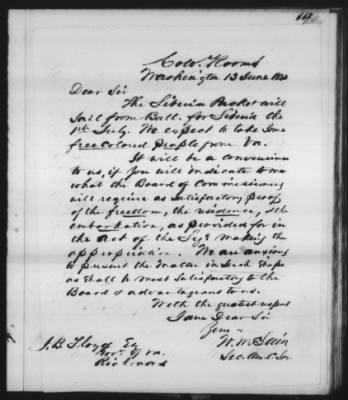 Colo. Rooms
Washington 13 June 1850
Dear Sir
The Liberia Packet will
sail from Balt. for Liberia the
1st July. We expect to take some
free colored people from Va.
It will be a convenience
to us, if you will indicate to me
what the Board of Commissioners
will require as satisfactory proof
of the freedom, the residence, & the
embarkation, as provided for in
the Act of the Leg. making the
appropriation. We are anxious
to present the matter in such shape
as shall be most satisfactory to the
Board & advantageous to us.
With the greatest respect
I am Dear Sir
Yours
W. McLain
Sec. Am. C. Soc.
J. B. Floyd Esq
Gov. of Va.
Richmond